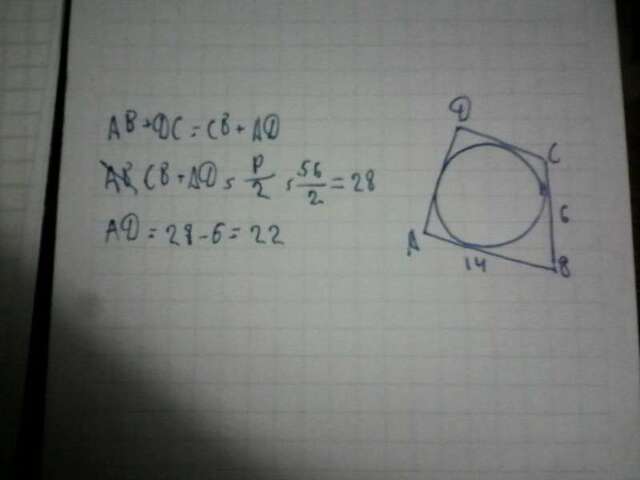 AB+DC=CB+AD
AB CB+AD= P/2 = 56/2 = 28
AD = 28-6=22
D
C
6
A
14
B